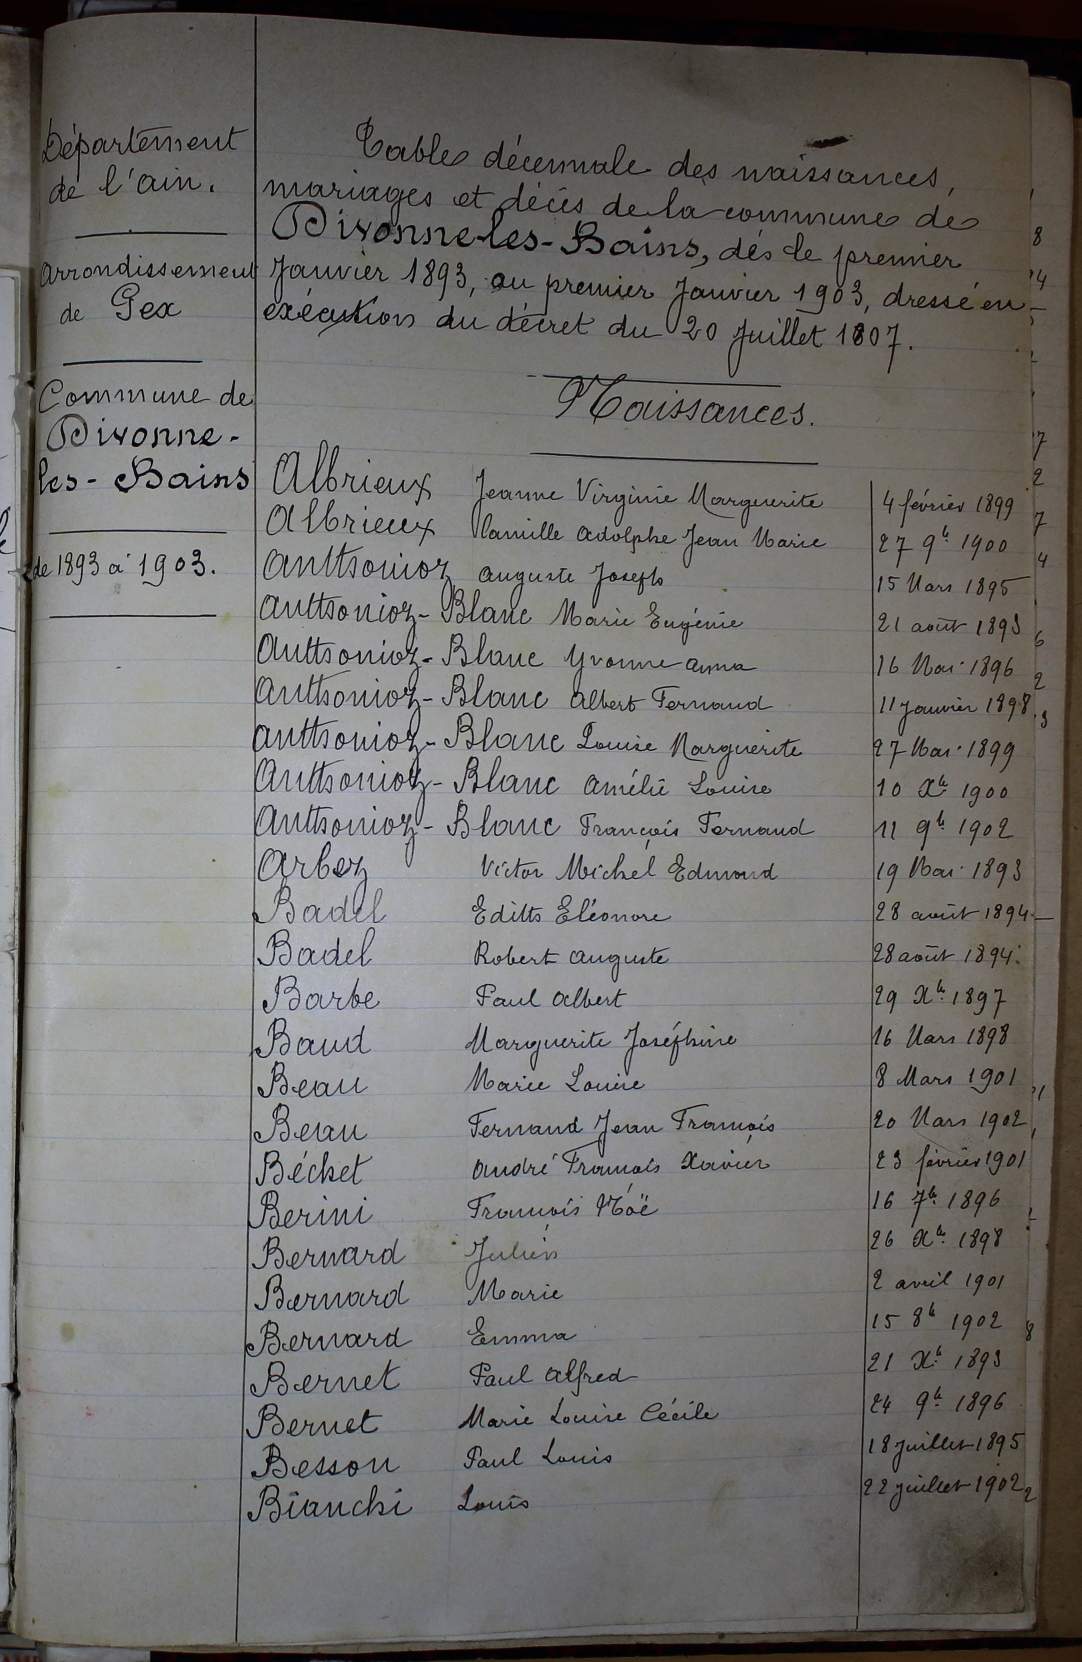 Département
de l'ain.
arrondissement
de Gex
Commune de
Divonne-
les-Bains
de 1893 à 1903.
Table décennale des naissances,
mariages et décès de la commune de
Divonne-les-Bains, dés le premier
Janvier 1893, au premier Janvier 1903, dressé en
exécution du décret du 20 Juillet 1807.
Naissances.
Albrieux Jeanne Virginie Marguerite 4 février 1899
Albrieux Camille adolphe Jean Marie 27 9b 1900
Anthonioz auguste Joseph 15 Mars 1895
Anthonioz-Blanc Marie Eugénie 21 août 1893
Anthonioz-Blanc Yvonne anna 16 Mai 1896
Anthonioz-Blanc albert Fernand 11 Janvier 1898
Anthonioz-Blanc Louise Marguerite 27 Mai 1899
Anthonioz-Blanc amélie Louise 10 Xb 1900
Anthonioz-Blanc François Fernand 11 9b 1902
Arbez Victor Michel Edmond 19 Mai 1893
Badel Edith Eléonore 28 août 1894
Badel Robert auguste 28 août 1894.
Barbe Paul albert 29 Xb 1897
Baud Marguerite Joséphine 16 Mars 1898
Beau Marie Louise 8 Mars 1901
Beau Fernand Jean François 20 Mars 1902
Béchet andré François Xavier 23 février 1901
Berini François Nöé 16 7b 1896
Bernard Julien 26 Xb 1898
Bernard Marie 2 avril 1901
Bernard Emma 15 8b 1902
Bernet Paul alfred 21 Xb 1893
Bernet Marie Louise Cécile 24 9b 1896
Besson Paul Louis 18 juillet 1895
Bianchi Louis 22 juillet 1902